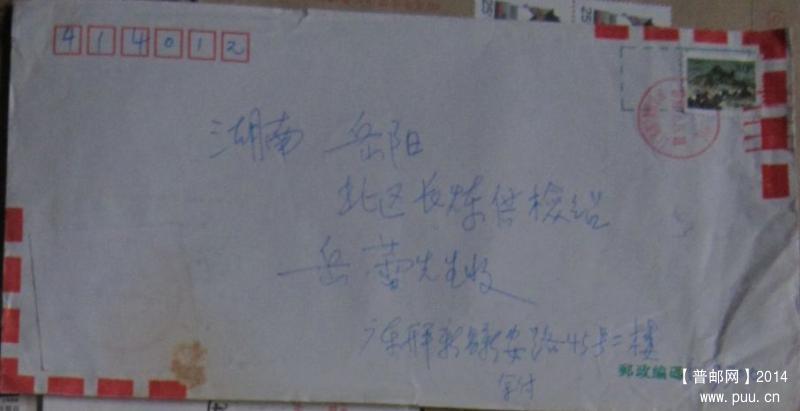 414012
湖南 岳阳
北区长炼供检站
岳蕾先生收
广东 新安路45号二楼
郵政編碼
【普邮网】2014
www.puu.cn